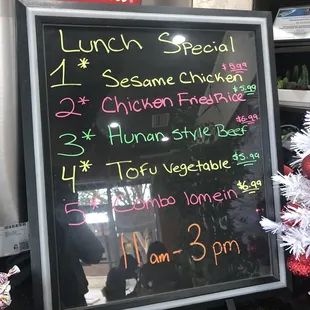 Lunch Special
1* Sesame Chicken $5.99
2* Chicken Fried Rice $5.99
3* Hunan Style Beef $6.99
4* Tofu Vegetable $5.99
5* Combo lomein $6.99
11am - 3pm